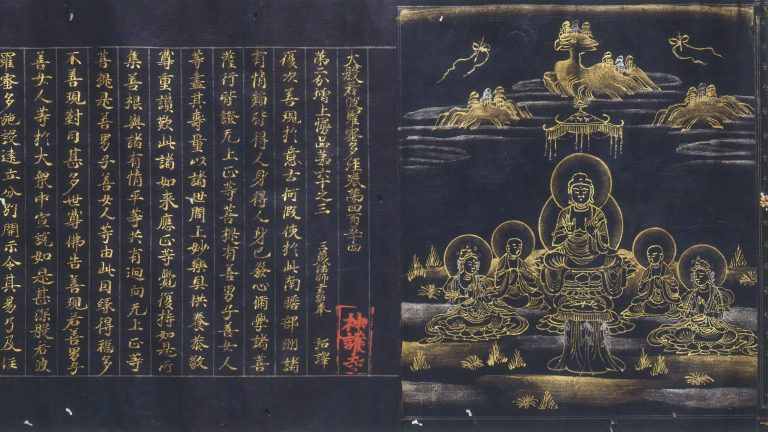 大般若波羅蜜多経巻第四百五十四
第二分増上慢品第六十之三
三藏法師玄奘奉 詔譯
神護寺
復次善現於意云何假使於此南贍部洲諸
有情類皆得人身得人身已發心修學諸菩
薩行皆證无上正等菩提有善男子善女人
等盡其壽量以諸世間上妙樂具供養恭敬
尊重讚歎此諸如來應正等覺復持如是所
集善根與諸有情平等共有迴向无上正等
菩提是善男子善女人等由此因縁得福多
不善現對曰甚多世尊佛告善現若善男子
善女人等於大衆中宣說如是甚深般若波
羅蜜多施設建立分別開示令其易了及住